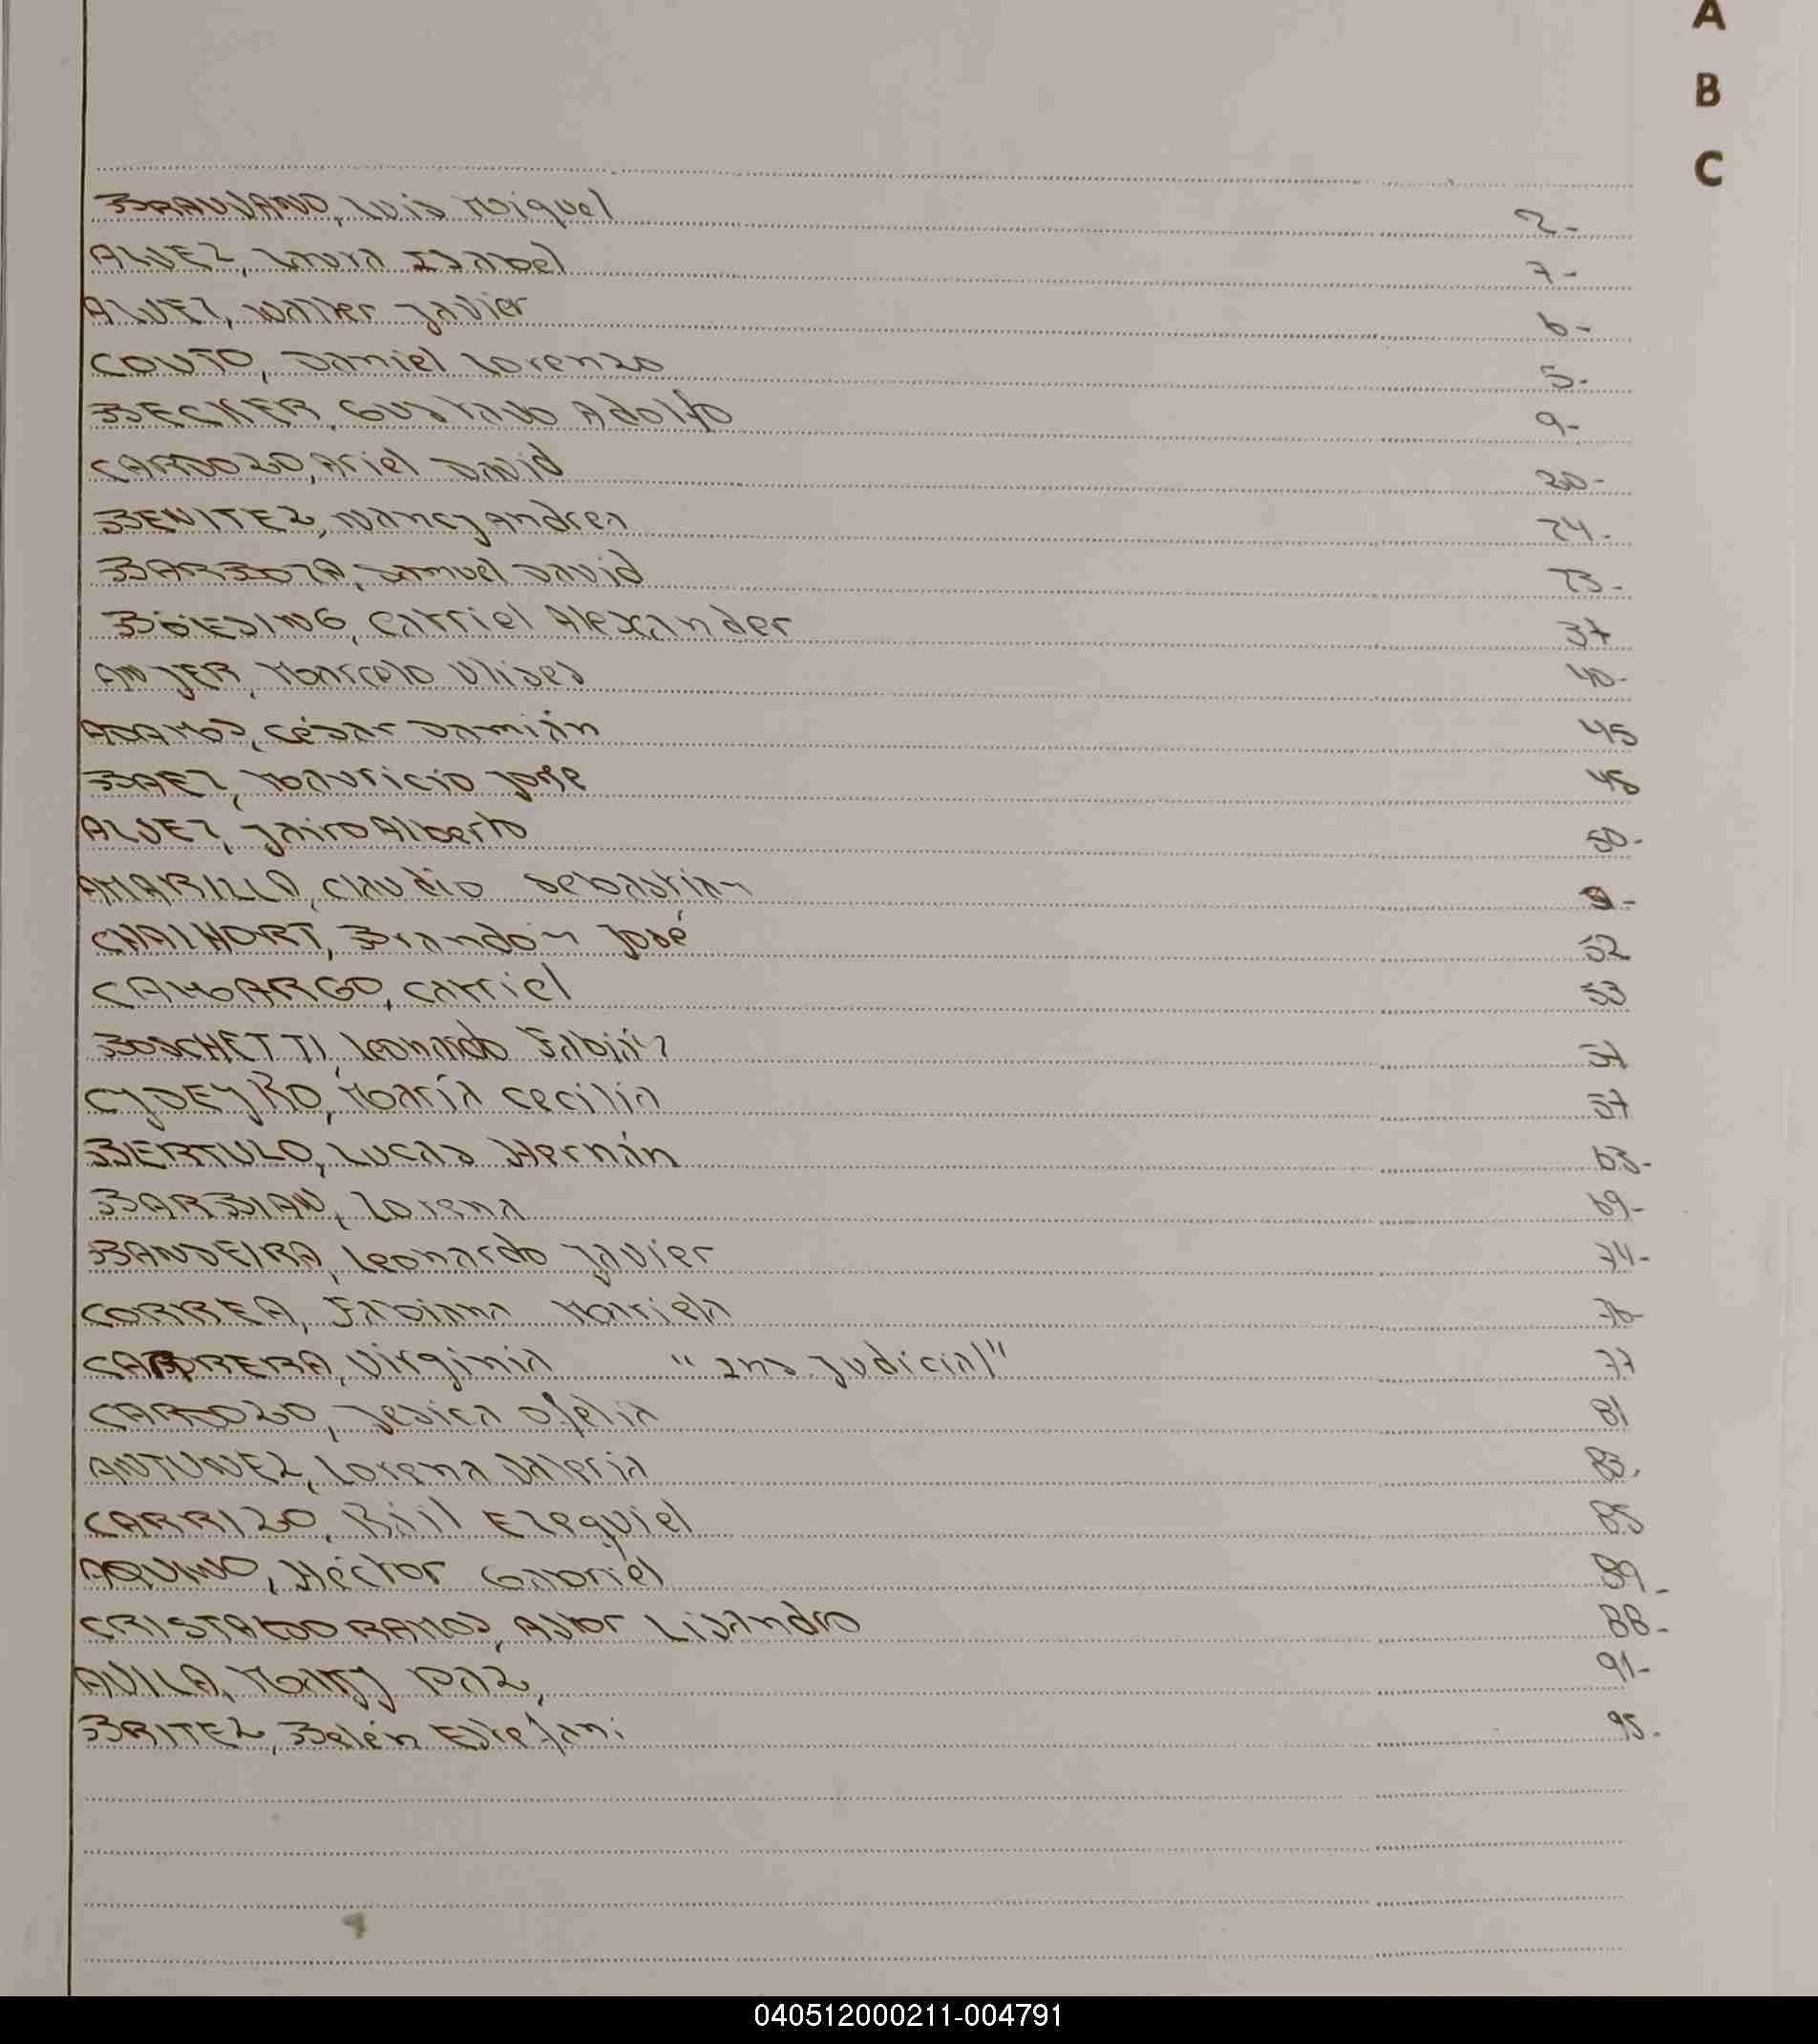 A
B
C
BRAUVANO, Luis Miguel 2-
ALVEZ, Laura Isabel 7-
ALVEZ, Walter Javier 6-
COUTO, Daniel Lorenzo 5-
BECKER, Gustavo Adolfo 9-
CARDOZO, Ariel David 20-
BENITEZ, Nancy Andrea 24-
BARBOZA, Samuel David 23-
BÖESING, Carriel Alexander 37
AMJER, Marcelo Ulises 40-
ADAMS, César Damián 45
BAEZ, Mauricio Jorge 48
ALVEZ, Jairo Alberto 50-
AMARILLA, Claudio Sebastian
CHALHORT, Brandon José 52
CAMARGO, Carriel 53
BOSCHETTI, Leonardo Fabián
CYDEYKO, María Cecilia 57
BERTULO, Lucas Hernán 63-
BARBIAN, Lorena 69-
BANDEIRA, Leonardo Javier 74-
CORREA, Fabiana Mariela 76
CABRERA, Virginia "Ins. Judicial" 77
CARDOZO, Jesica Ofelia 81
ANTUNEZ, Lorena Valeria 83.
CARRIZO, Ezequiel 85
AQUINO, Héctor Gabriel 89-
CRISTALDO RAMOS, Astor Lisandro 88-
AVILA, Paz, 91-
BRITEZ, Belén Estefani 95-
040512000211-004791